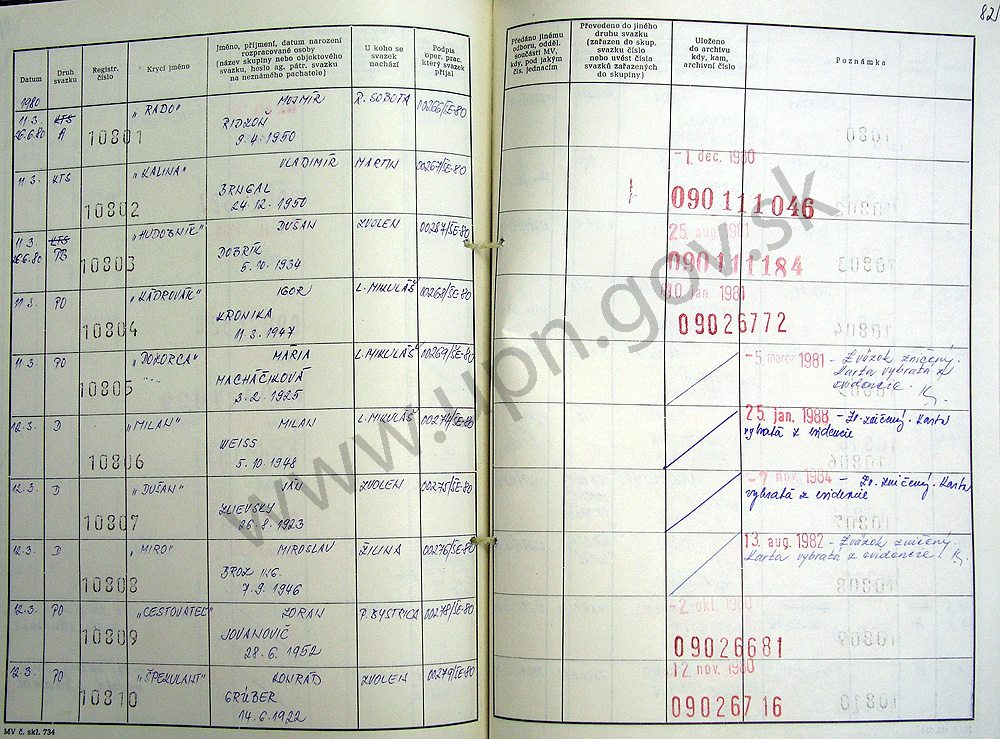 82
Datum
Druh svazku
Registr. číslo
Krycí jméno
Jméno, příjmení, datum narození
rozpracované osoby
(název skupiny nebo objektového
svazku, heslo ag. pátr. svazku
na neznámého pachatele)
U koho se
svazek
nachází
Podpis
oper. prac.
který svazek
přijal
Předáno jinému
odboru, odděl.
součásti MV,
kdy, pod jakým
čís. jednacím
Převedeno do jiného
druhu svazku
(zařazen do skup.
svazku číslo
nebo uvést čísla
svazků zařazených
do skupiny)
Uloženo
do archivu
kdy, kam,
archivní číslo
Poznámka
1980
11.3. KTS 10801 „RADO" MOJMÍR R. SOBOTA 00266/SE-80
26.6.80 A RIDZOŇ
9.4.1950
11.3. KTS 10802 „KALINA" VLADIMÍR MARTIN 00267/SE-80 -1. dec. 1980
BRNGAL 090 111 046
24.12.1950
11.3. KTS 10803 „HUDOBNÍK" DUŠAN ZVOLEN 00257/SE-80 25. aug. 1981
26.6.80 PB DOBRÍK 090 111 184
5.10.1934
11.3. PO 10804 „KÁDROVÁK" IGOR L. MIKULÁŠ 00268/SE-80 30. jan. 1981
KRONIKA 09026772
11.3.1947
11.3. PO 10805 „DOZORCA" MÁRIA L. MIKULÁŠ 00269/SE-80 -5. marca 1981 - Zväzok zničený.
MACHÁČIKOVÁ Karta vybratá z
3.2.1925 evidencie.
12.3. D 10806 „MILAN" MILAN L. MIKULÁŠ 00274/SE-80 25. jan. 1988 - Zv. zničený. Karta
WEISS vybratá z evidencie
5.10.1948
12.3. D 10807 „DUŠAN" JÁN ZVOLEN 00275/SE-80 nov. 1984 - Zv. zničený. Karta
ZLIEVSKY vybratá z evidencie
26.8.1923
12.3. D 10808 „MIRO" MIROSLAV ŽILINA 00276/SE-80 13. aug. 1982 - Zväzok zničený.
BROZ ING. Karta vybratá z evidencie
7.9.1946
12.3. PO 10809 „CESTOVATEĽ" ZORAN P. BYSTRICA 00278/SE-80 -2. okt. 1980
JOVANOVIČ 09026681
28.6.1952
12.3. PO 10810 „ŠPEKULANT" KONRÁD ZVOLEN 00279/SE-80 12. nov. 1980
GRÚBER 09026716
14.6.1922
MV č. skl. 734
www.upn.gov.sk